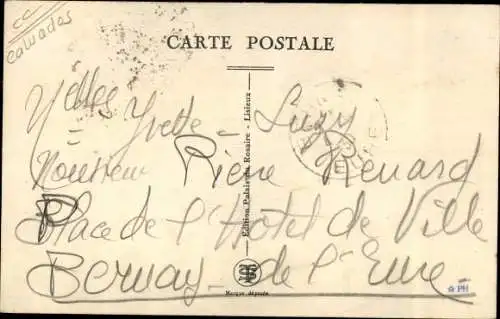 cc
calvados
CARTE POSTALE
Mlles Yvette - Suzy
Monsieur Pière Renard
Place de l'Hôtel de Ville
Bernay - de l'Eure
Edition Palais du Rosaire - Lisieux
EURE
Marque déposée
PH